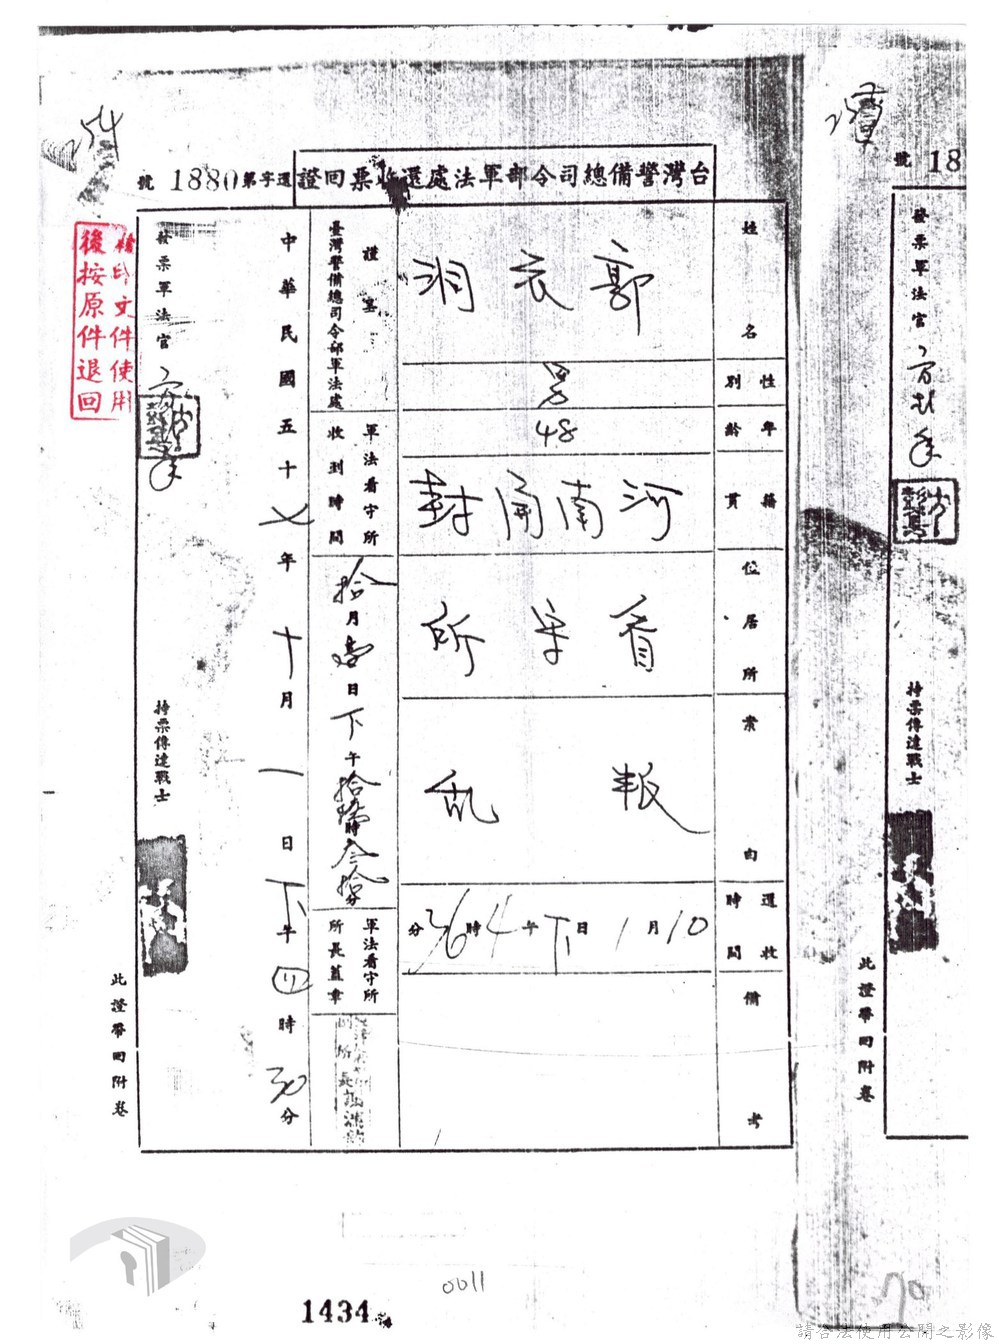 254
台灣警備總司令部軍法處還收票回證
還字第1880號
姓名
郭衣洞
性別
男
年齡
48
籍貫
河南開封
住居所
看守所
案由
叛亂
還收時間
10月1日下午4時36分
備考
謹呈
臺灣警備總司令部軍法處
軍法看守所收到時間
拾月壹日下午
時
分
軍法看守所所長蓋章
所長
中華民國五十七年十月一日下午四時30分
發票軍法官
持票傳達戰士
此證帶回附卷
檔印文件使用
後按原件退回
號 18
發票軍法官
持票傳達戰士
此證帶回附卷
0011
1434
70
請合法使用公開之影像